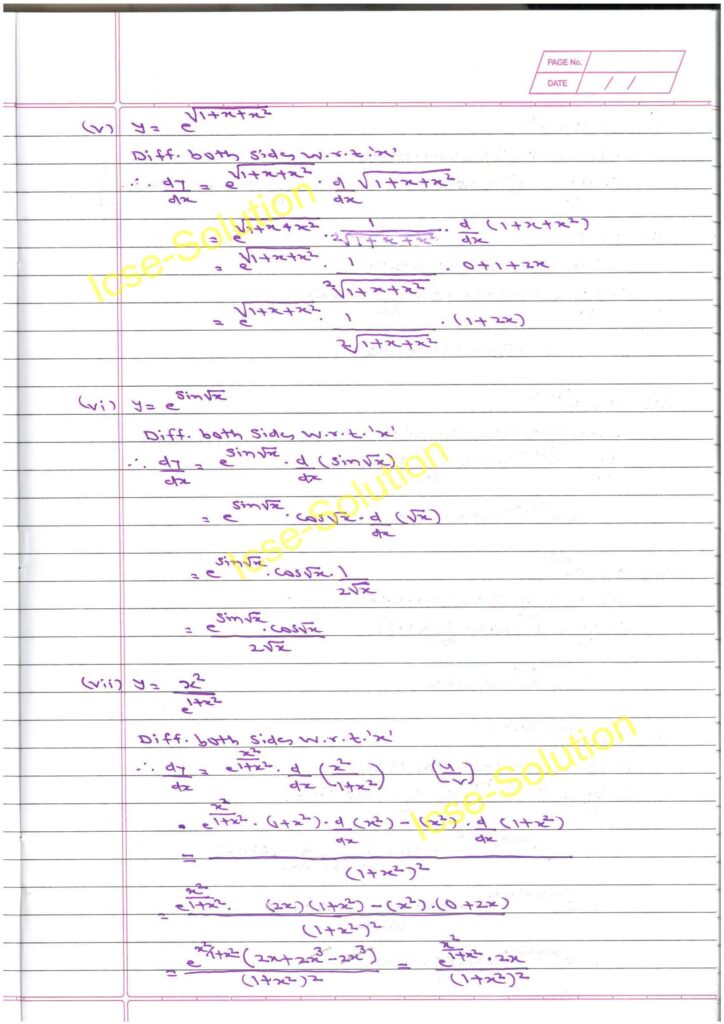 PAGE No.
DATE / /
(v) y = e^√(1+x+x²)
Diff. both sides w.r.t. 'x'
∴ dy/dx = e^√(1+x+x²) · d/dx √(1+x+x²)
= e^√(1+x+x²) · 1/(2√(1+x+x²)) · d/dx (1+x+x²)
= e^√(1+x+x²) · 1/(2√(1+x+x²)) · 0+1+2x
= e^√(1+x+x²) · 1/(2√(1+x+x²)) · (1+2x)
Icse-Solution
(vi) y = e^sin√x
Diff. both sides w.r.t. 'x'
∴ dy/dx = e^sin√x · d/dx (sin√x)
= e^sin√x · cos√x · d/dx (√x)
= e^sin√x · cos√x · 1/(2√x)
= (e^sin√x · cos√x)/(2√x)
Icse-Solution
(vii) y = x²/e^(1+x²)
Diff. both sides w.r.t. 'x'
∴ dy/dx = e^(x²/(1+x²)) · d/dx (x²/(1+x²)) (u/v)
= (e^(x²/(1+x²)) · (1+x²) · d/dx (x²) - (x²) · d/dx (1+x²))/(1+x²)²
= (e^(x²/(1+x²)) · (2x)(1+x²) - (x²)·(0+2x))/(1+x²)²
= (e^(x²/(1+x²)) (2x+2x³-2x³))/(1+x²)² = (e^(x²/(1+x²)) · 2x)/(1+x²)²
Icse-Solution